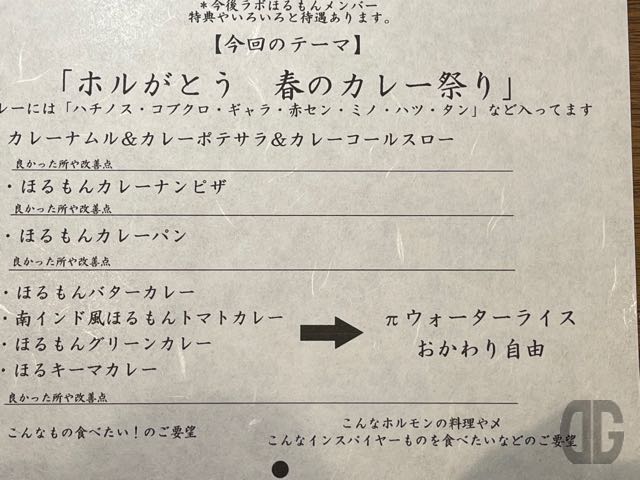 ＊今後ラボほるもんメンバー
特典やいろいろと待遇あります。
【今回のテーマ】
「ホルがとう　春のカレー祭り」
レーには「ハチノス・コブクロ・ギャラ・赤セン・ミノ・ハツ・タン」など入ってます
カレーナムル＆カレーポテサラ＆カレーコールスロー
良かった所や改善点
・ほるもんカレーナンピザ
良かった所や改善点
・ほるもんカレーパン
良かった所や改善点
・ほるもんバターカレー
・南インド風ほるもんトマトカレー
・ほるもんグリーンカレー
・ほるキーマカレー
πウォーターライス
おかわり自由
良かった所や改善点
こんなもの食べたい！のご要望
こんなホルモンの料理やメ
こんなインスパイヤーものを食べたいなどのご要望
DG